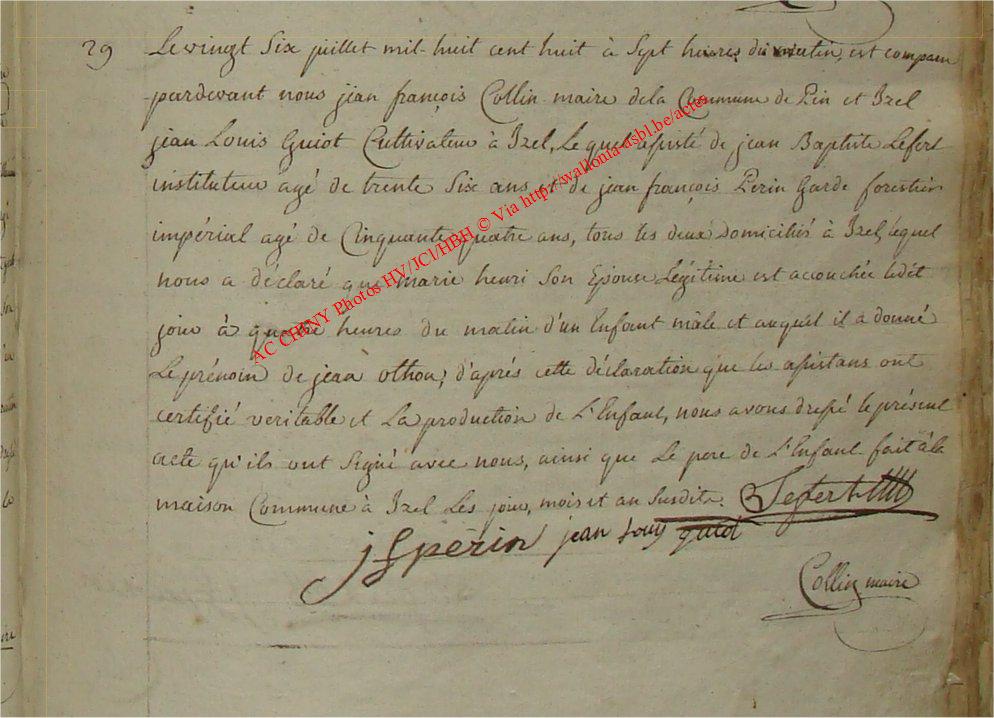 29 Le vingt Six juillet mil-huit cent huit à Sept heures du matin, est comparu
pardevant nous jean françois Collin maire dela Commune de Pin et Izel
jean Louis Guiot Cultivateur à Izel, Le quel assisté de jean Baptiste Lefert
instituteur agé de trente Six ans et de jean françois Perin Garde forestier
impérial agé de Cinquante quatre ans, tous les deux domiciliés à Izel, lequel
nous a déclaré que marie henri Son Epouse Légitime est accouchée ledit
jour à quatre heures du matin d'un Enfant mâle et auquel il a donné
Le prénom de jean othon; d'après cette déclaration que les assistans ont
certifié veritable et La production de L'Enfant, nous avons dressé le présent
acte qu'ils ont Signé avec nous, ainsi que Le pere de L'Enfant fait à la
maison Commune à Izel Les jour, mois et an Susdits. Lefert
jf perin jean Louy guiot
Collin maire
AC CHINY Photos HV/JCl/HBH © Via http://wallonia-asbl.be/actes